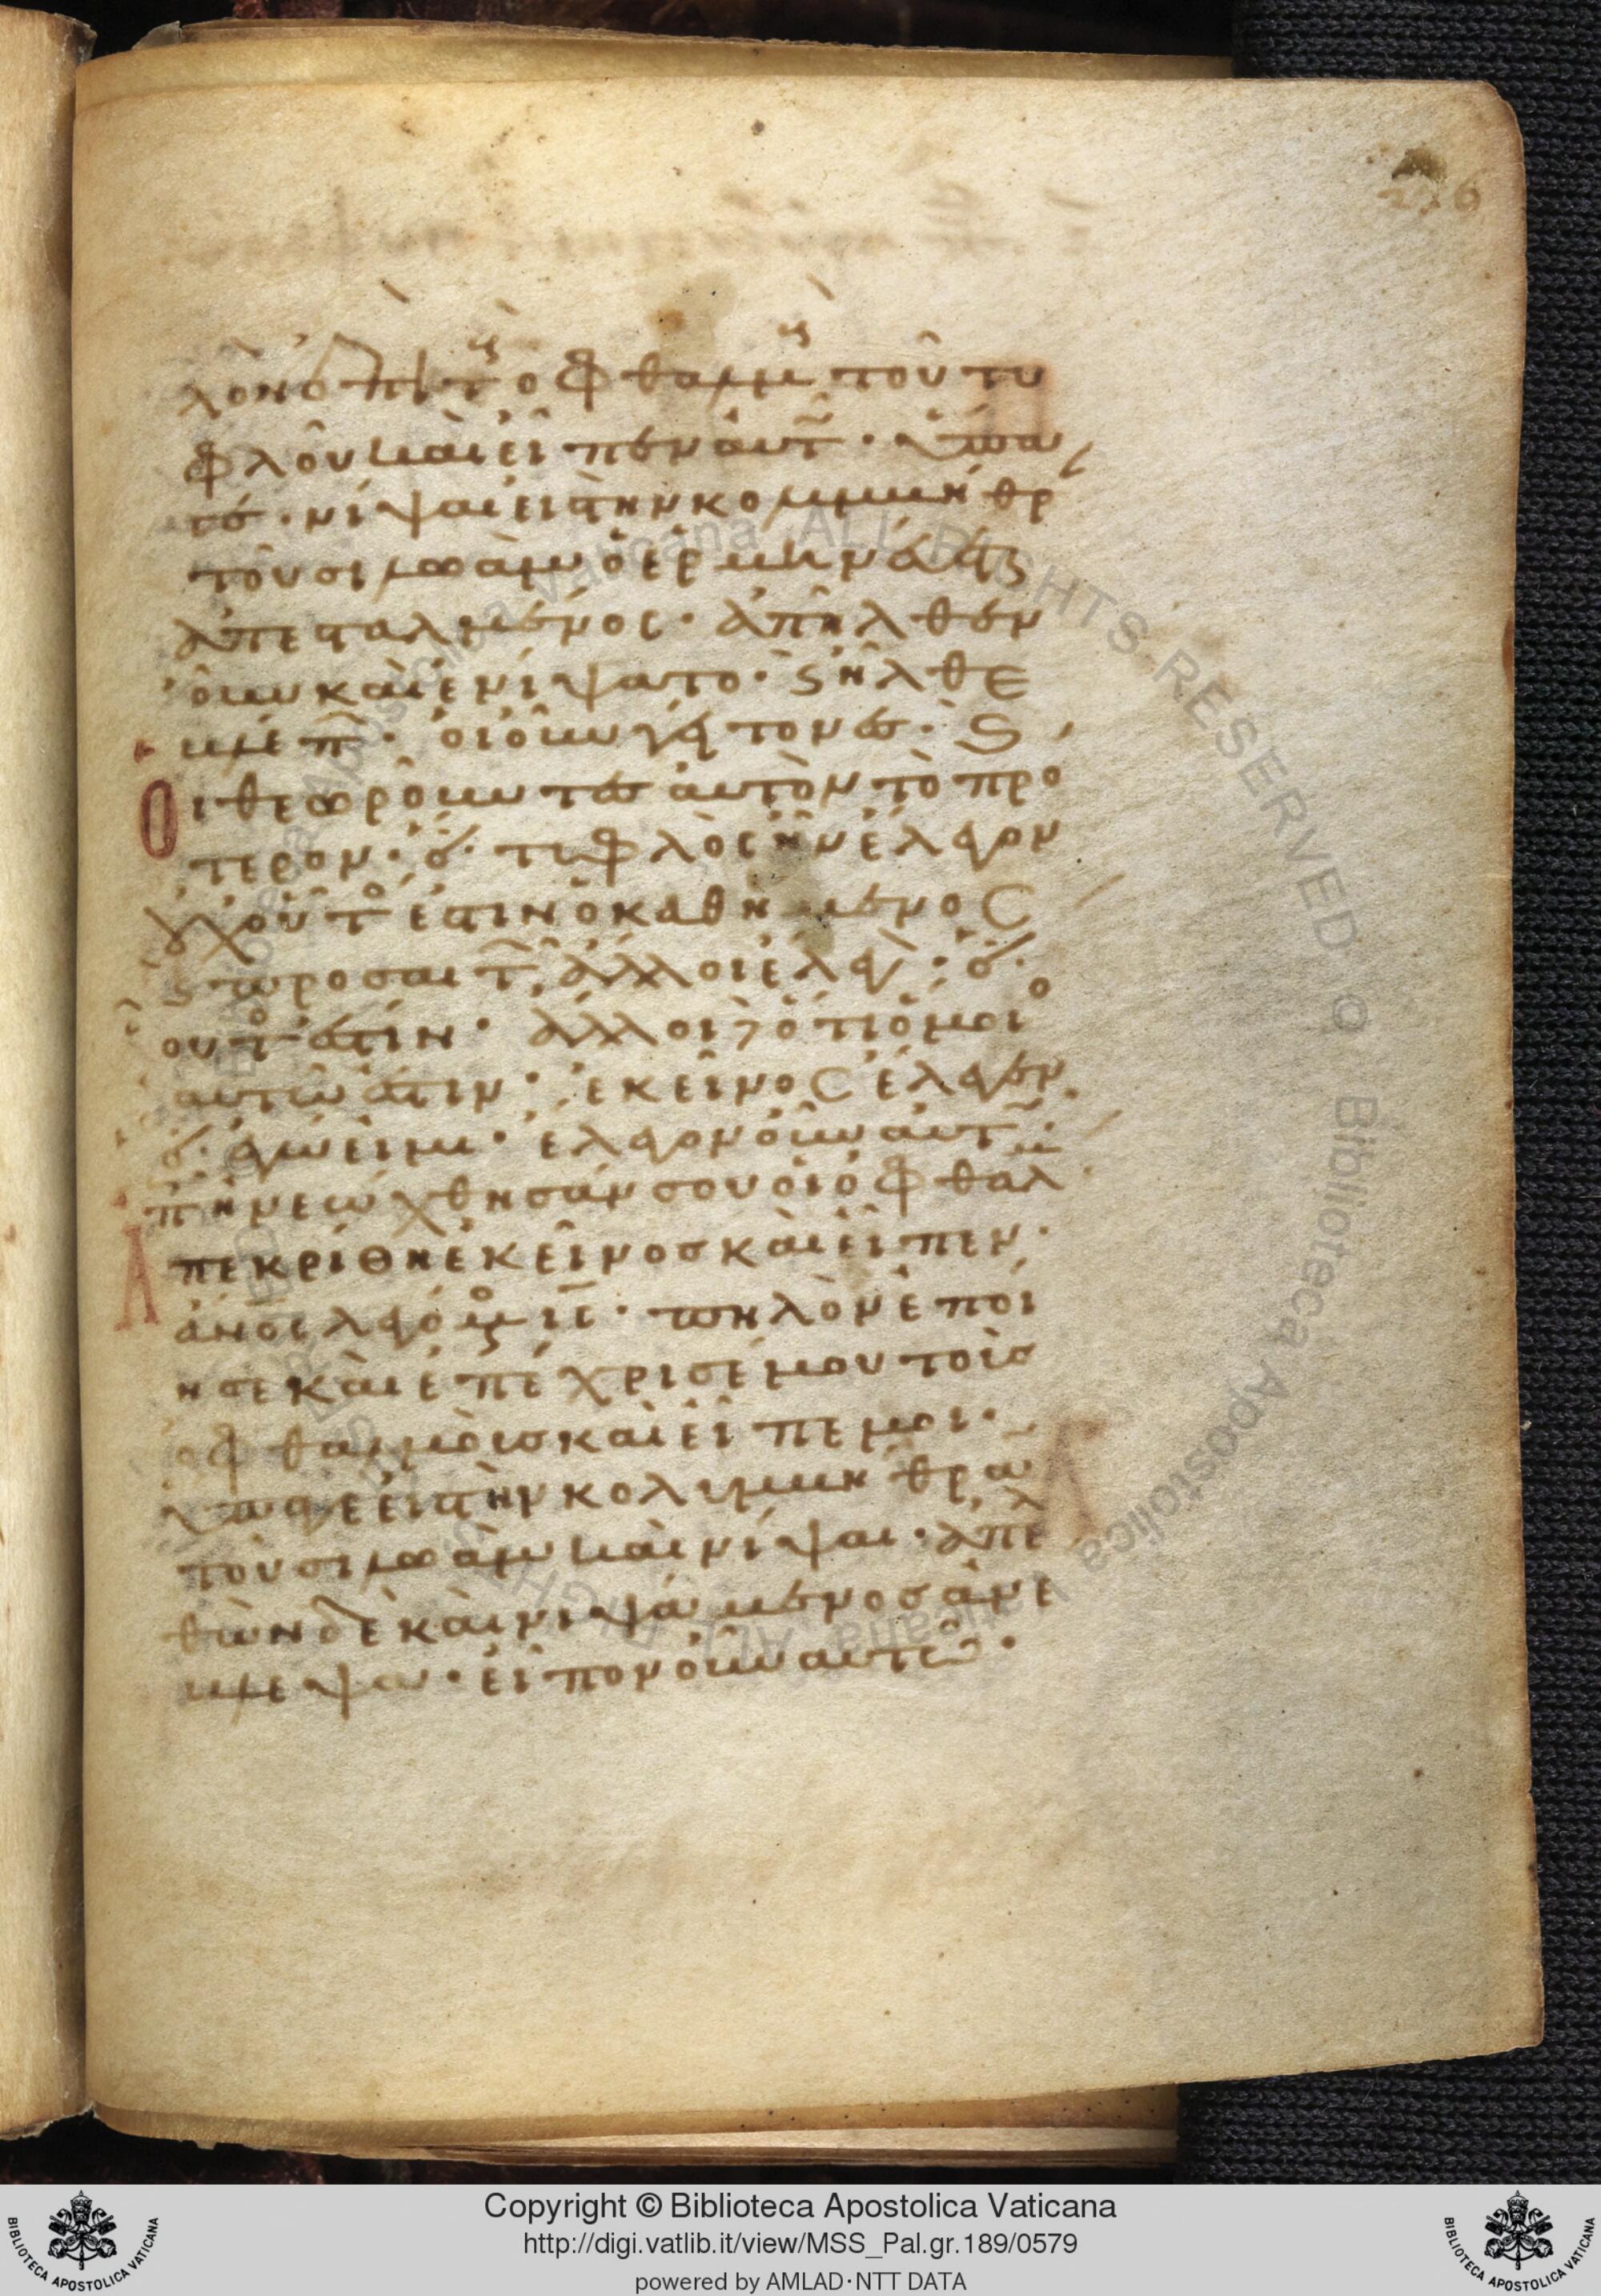 λὸν ἐπὶ τοὺς ὀφθαλμοὺς τοῦ τυ
φλοῦ καὶ εἶπεν αὐτῷ· ὕπα
γε· νίψαι εἰς τὴν κολυμβήθρ
τοῦ σιλωὰμ ὃ ἑρμηνεύεται
ἀπεσταλμένος· ἀπῆλθεν
οὖν καὶ ἐνίψατο· καὶ ἦλθε
βλέπων· οἱ οὖν γείτονες· καὶ
οἱ θεωροῦντες αὐτὸν τὸ πρό
τερον· ὅτι τυφλὸς ἦν ἔλεγον
οὐχ οὗτός ἐστιν ὁ καθήμενος
καὶ προσαιτῶν, ἄλλοι ἔλεγον· ὅτι
οὗτός ἐστιν· ἄλλοι δὲ ὅτι ὅμοιος
αὐτῷ ἐστιν· ἐκεῖνος ἔλεγεν
ὅτι ἐγώ εἰμι· ἔλεγον οὖν αὐτῷ
πῶς ἠνεῴχθησάν σου οἱ ὀφθαλμοί
ἀπεκρίθη ἐκεῖνος καὶ εἶπεν·
ἄνος λεγόμενος ις· πηλὸν ἐποί
ησε καὶ ἐπέχρισέ μου τοὺς
ὀφθαλμοὺς καὶ εἶπέ μοι·
ὕπαγε εἰς τὴν κολυμβήθραν
τοῦ σιλωὰμ καὶ νίψαι· ἀπελ
θὼν δὲ καὶ νιψάμενος ἀνέ
βλεψα· εἶπον οὖν αὐτῷ·
Copyright © Biblioteca Apostolica Vaticana
http://digi.vatlib.it/view/MSS_Pal.gr.189/0579
powered by AMLAD·NTT DATA